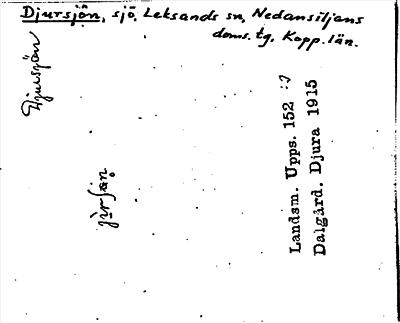 Djursjön, sjö, Leksands sn, Nedansiljans
doms. tg, Kopp. län.
Djursjön
Landsm. Upps. 152 :7
Dalgård. Djura 1915